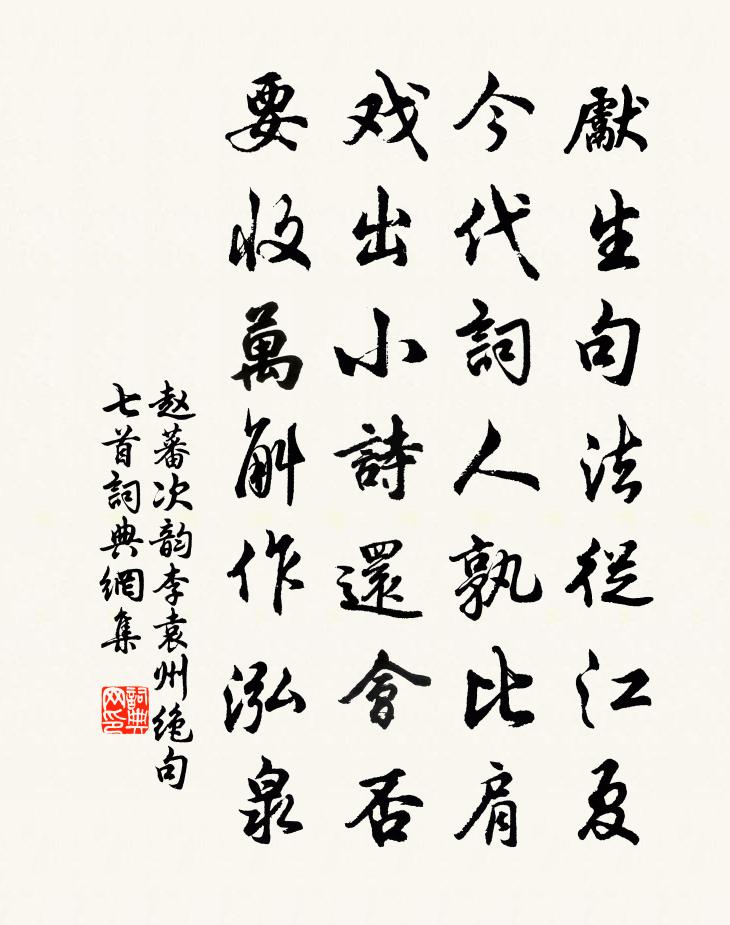 獻生句法從江夏
今代詞人孰比肩
戏出小詩還會否
要收萬斛作泓泉
赵蕃次韵李袁州绝句
七首詞典網集
詞典网印